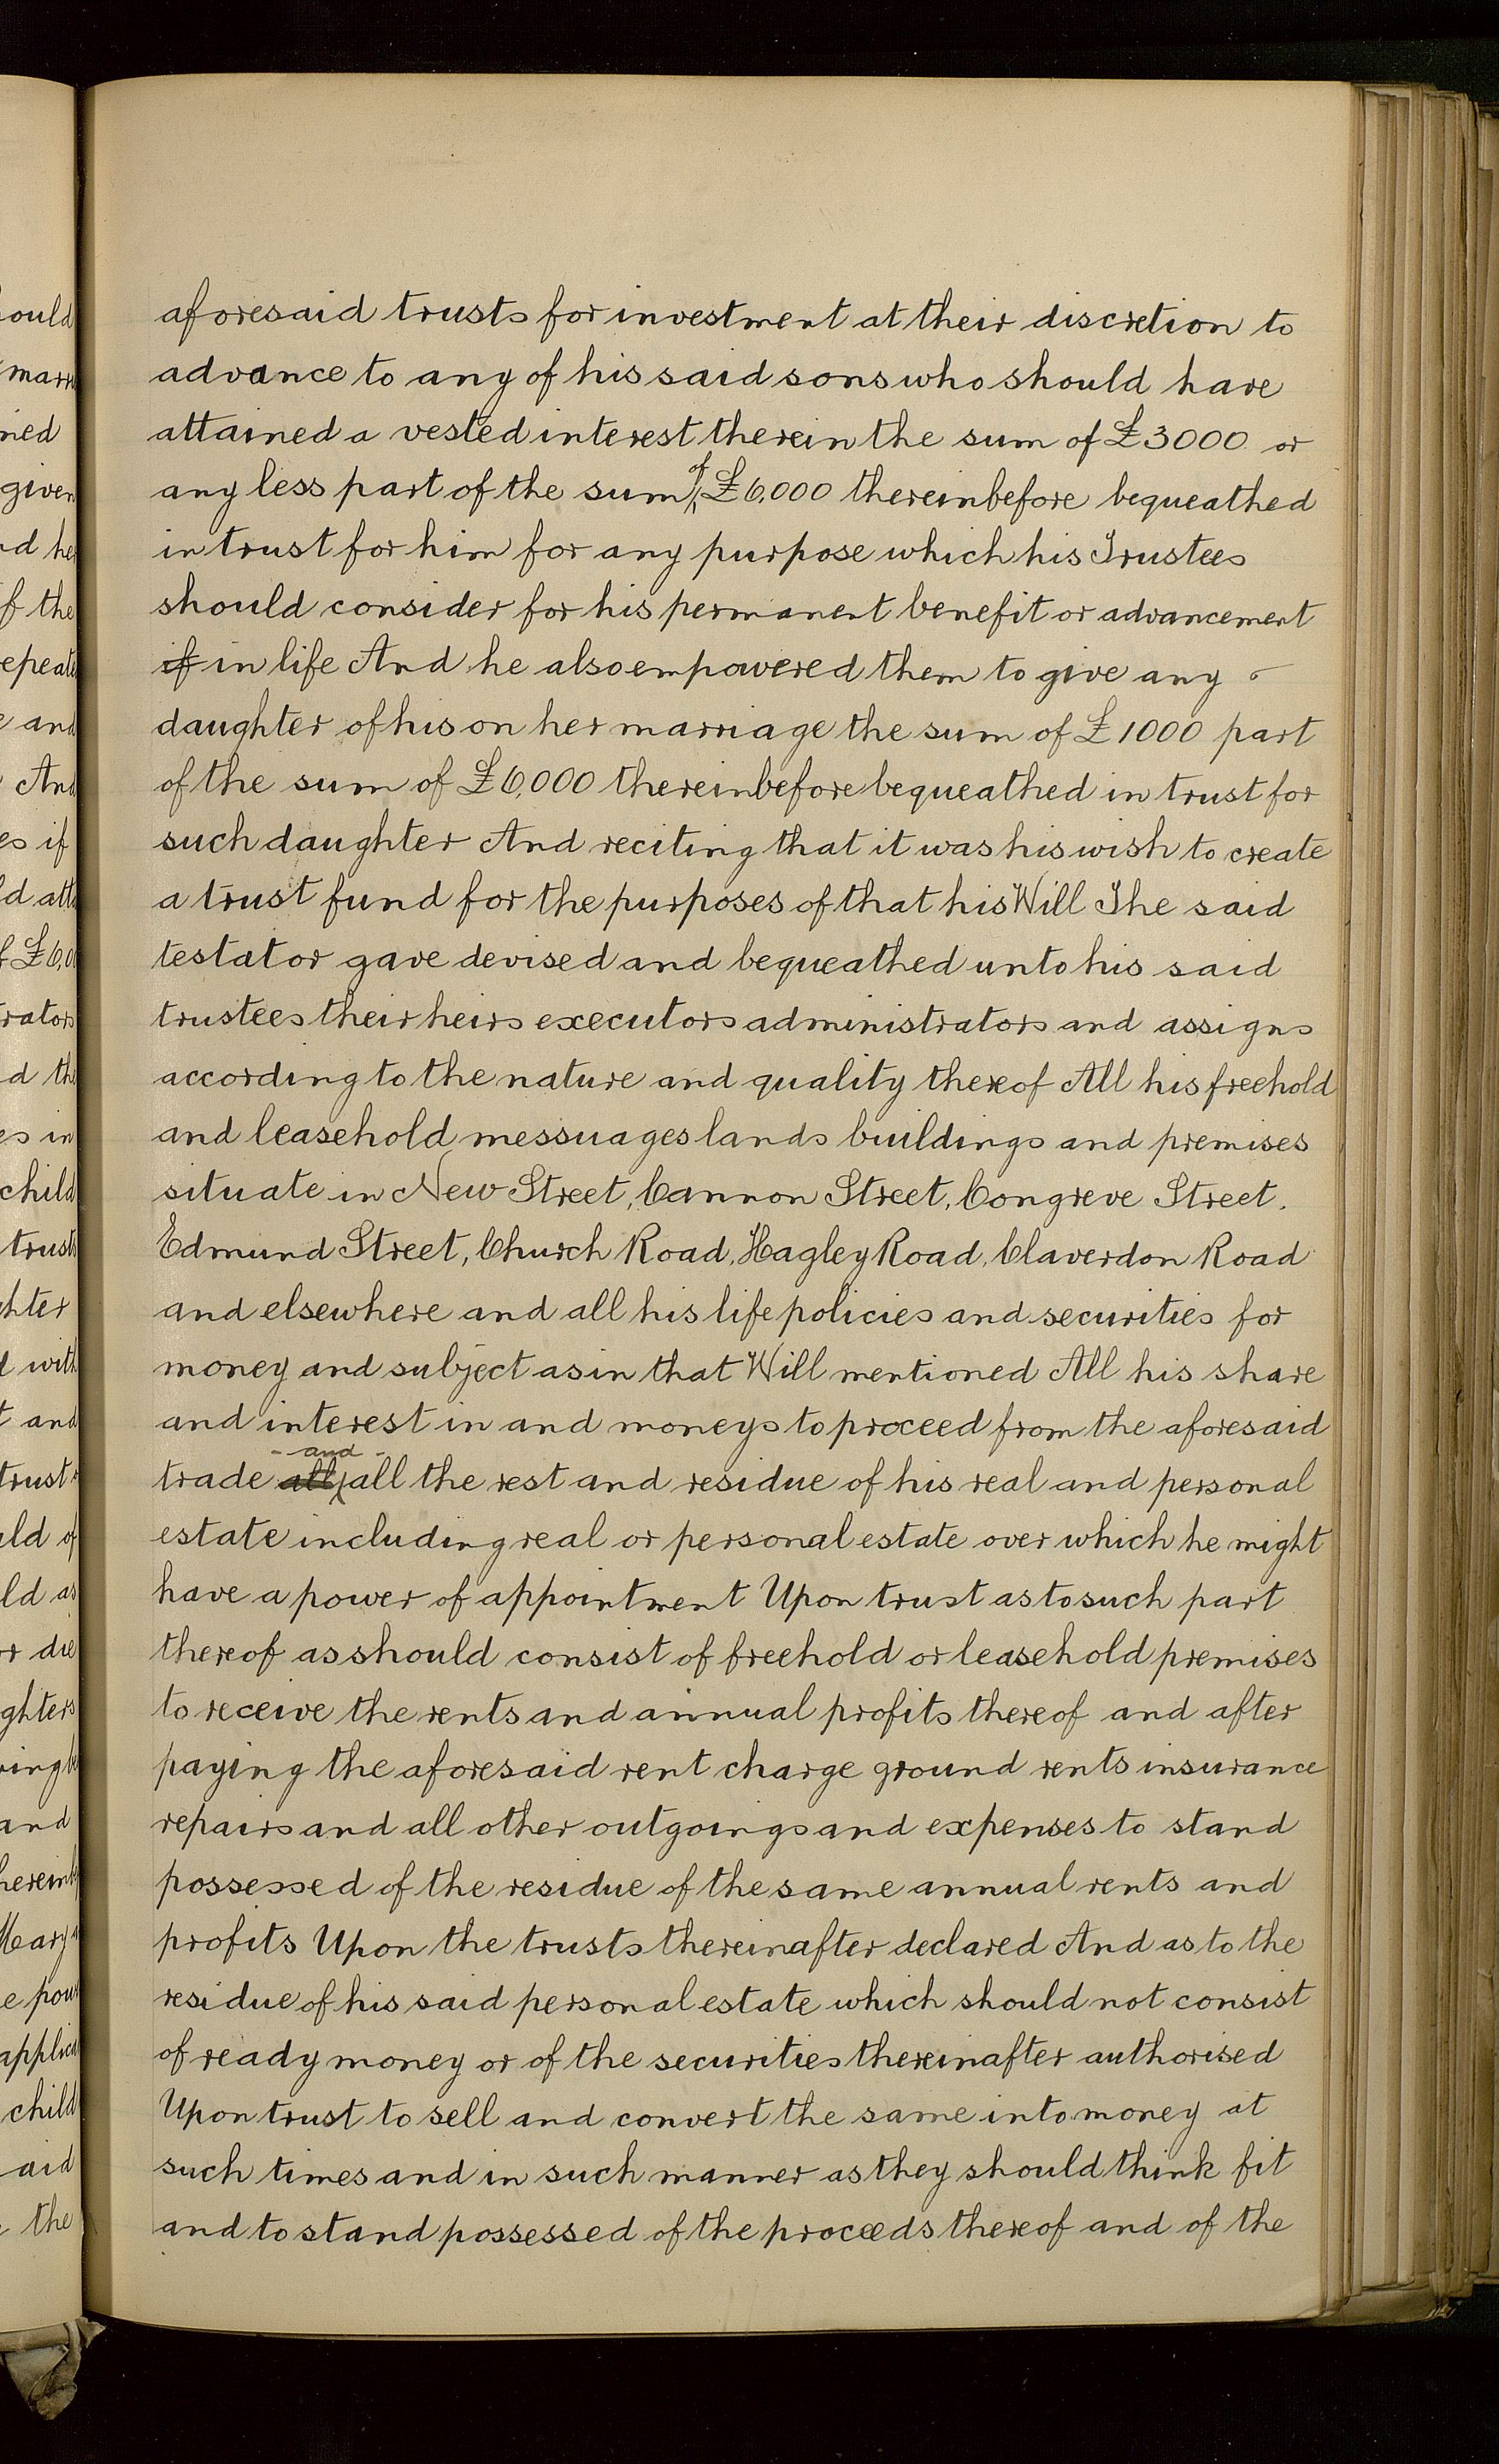 aforesaid trusts for investment at their discretion to
advance to any of his said sons who should have
attained a vested interest therein the sum of £3000 or
any less part of the sum of £6,000 thereinbefore bequeathed
in trust for him for any purpose which his Trustees
should consider for his permanent benefit or advancement
if in life And he also empowered them to give any
daughter of his on her marriage the sum of £1000 part
of the sum of £6,000 thereinbefore bequeathed in trust for
such daughter And reciting that it was his wish to create
a trust fund for the purposes of that his Will The said
testator gave devised and bequeathed unto his said
trustees their heirs executors administrators and assigns
according to the nature and quality thereof All his freehold
and leasehold messuages lands buildings and premises
situate in New Street, Cannon Street, Congreve Street,
Edmund Street, Church Road, Hagley Road, Claverdon Road
and elsewhere and all his life policies and securities for
money and subject as in that Will mentioned All his share
and interest in and moneys to proceed from the aforesaid
trade all - and - all the rest and residue of his real and personal
estate including real or personal estate over which he might
have a power of appointment Upon trust as to such part
thereof as should consist of freehold or leasehold premises
to receive the rents and annual profits thereof and after
paying the aforesaid rent charge ground rents insurance
repairs and all other outgoings and expenses to stand
possessed of the residue of the same annual rents and
profits Upon the trusts thereinafter declared And as to the
residue of his said personal estate which should not consist
of ready money or of the securities thereinafter authorised
Upon trust to sell and convert the same into money at
such times and in such manner as they should think fit
and to stand possessed of the proceeds thereof and of the